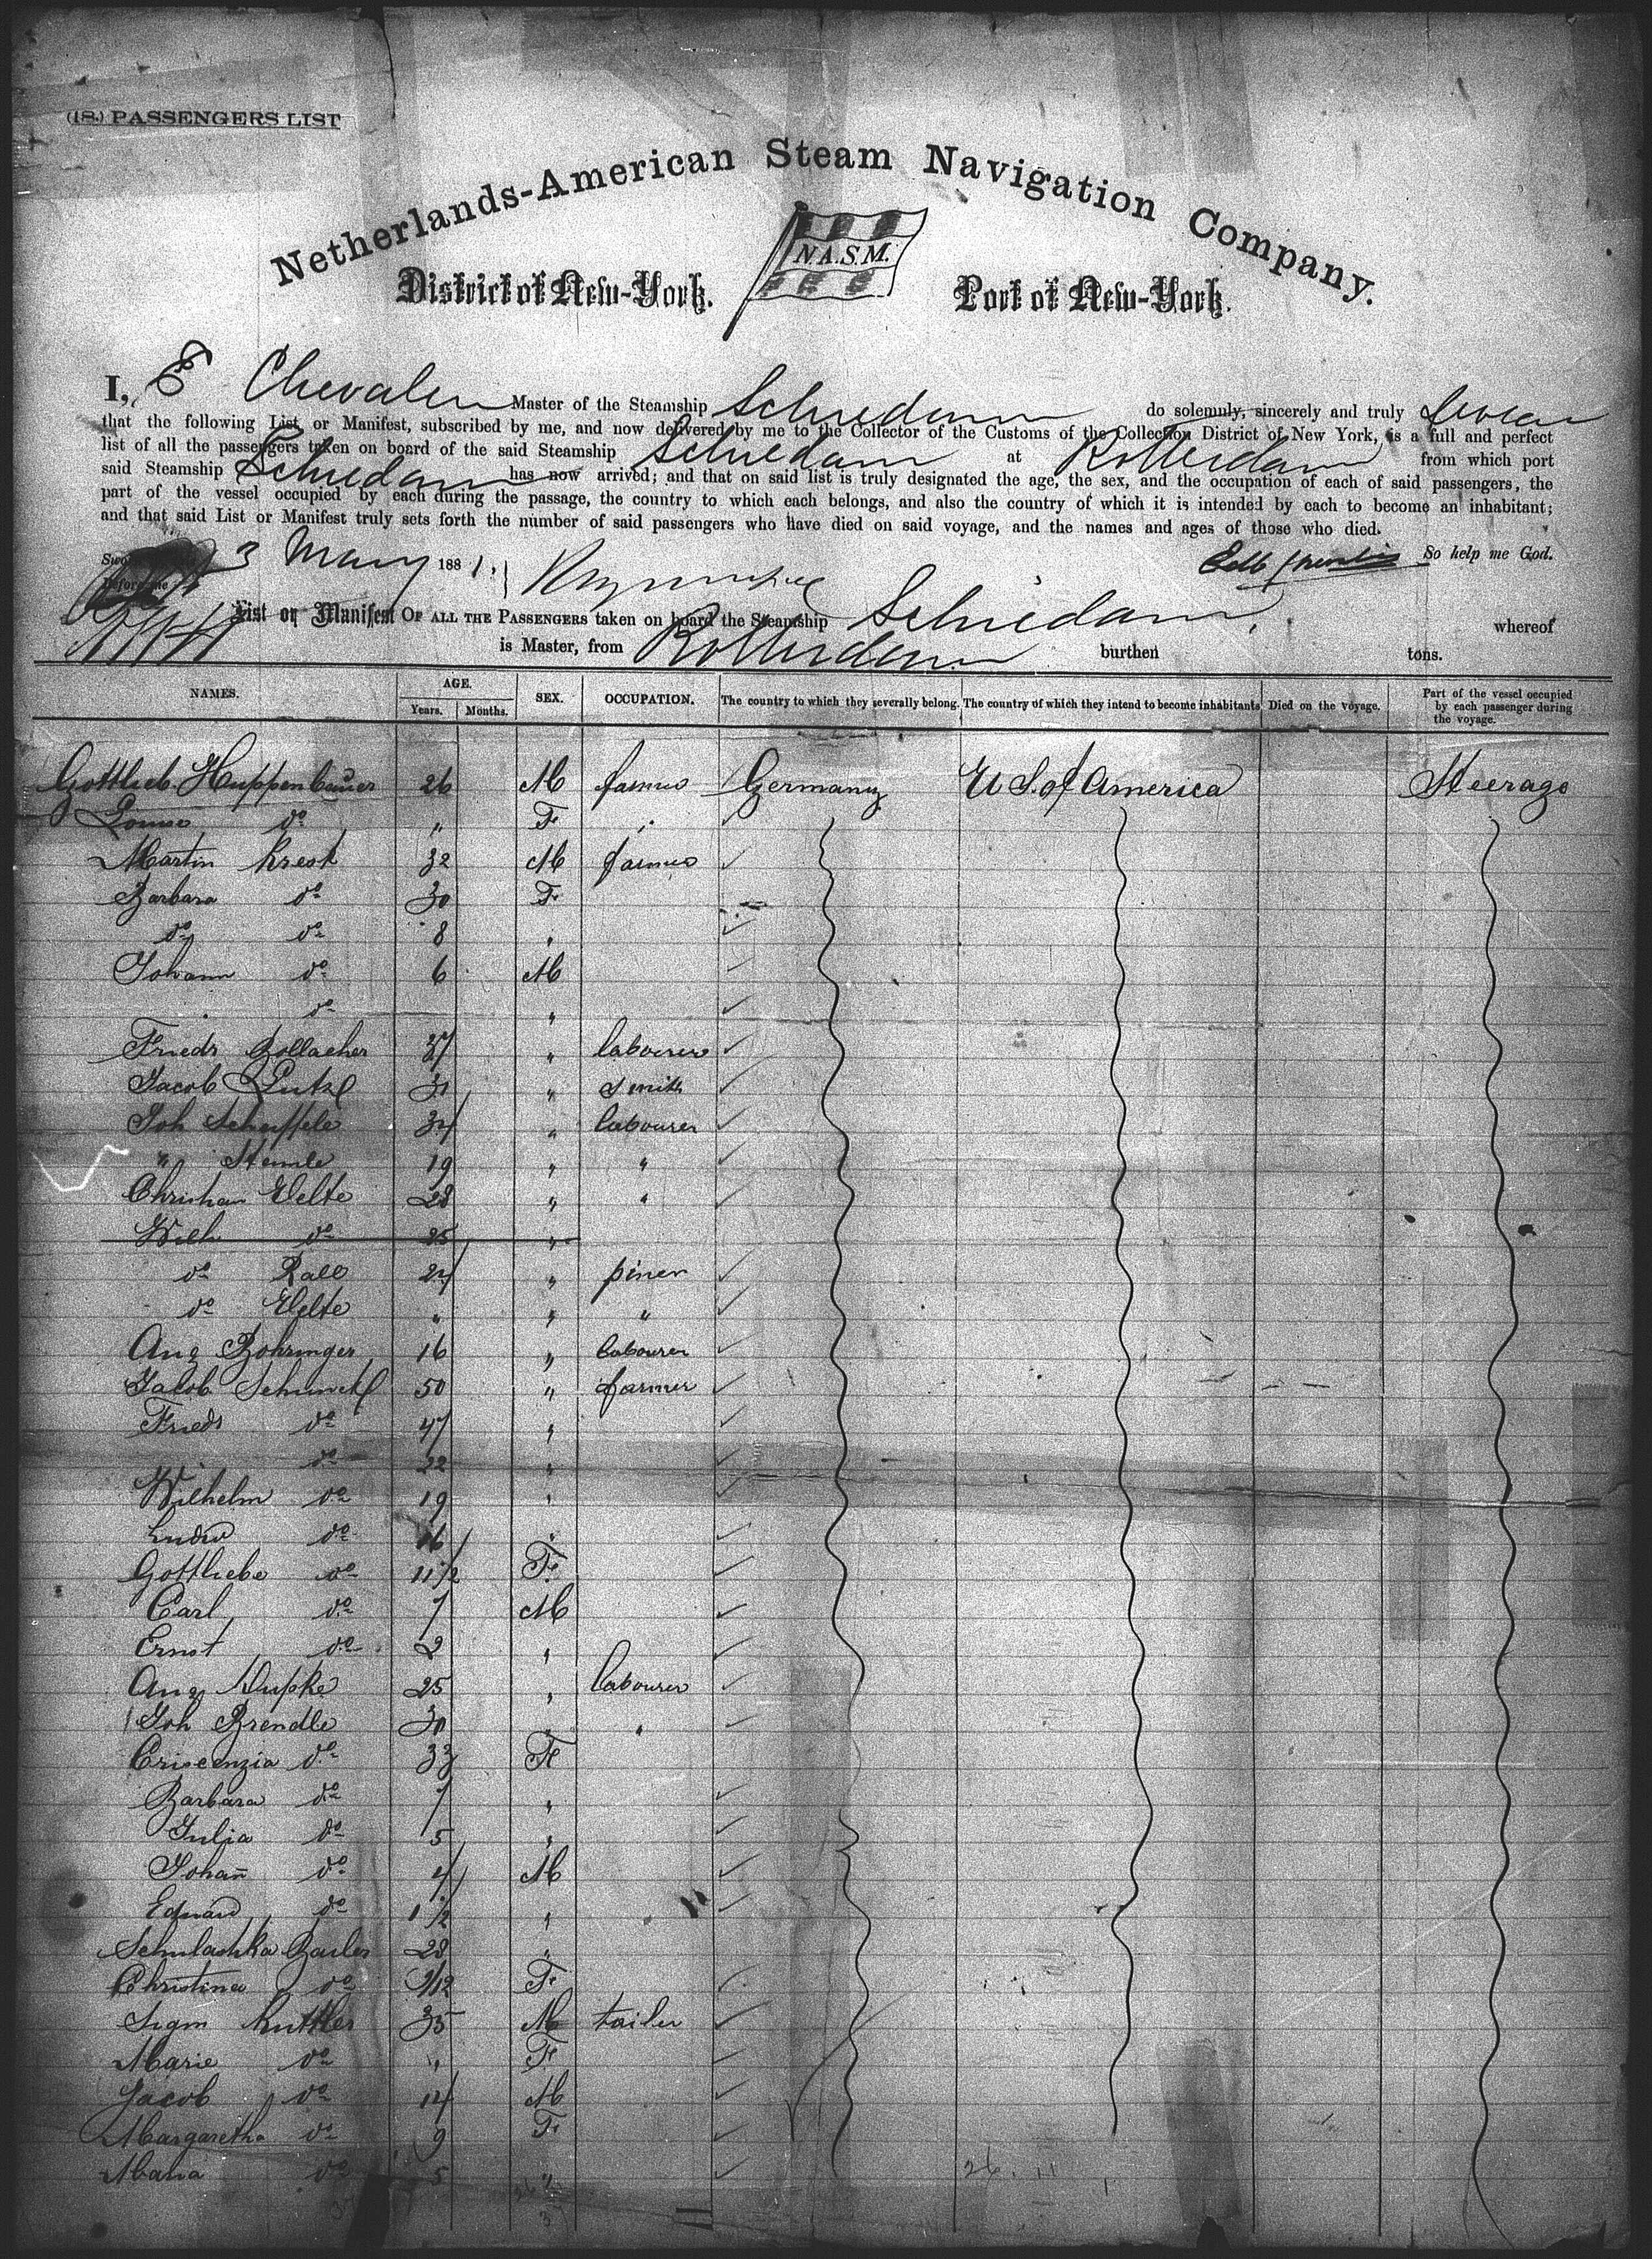 (18.) PASSENGERS LIST
Netherlands-American Steam Navigation Company.
N.A.S.M.
District of New-York. Port of New-York.
I, E Chevalier Master of the Steamship Schiedam do solemnly, sincerely and truly swear
that the following List or Manifest, subscribed by me, and now delivered by me to the Collector of the Customs of the Collection District of New York, is a full and perfect
list of all the passengers taken on board of the said Steamship Schiedam at Rotterdam from which port
said Steamship Schiedam has now arrived; and that on said list is truly designated the age, the sex, and the occupation of each of said passengers, the
part of the vessel occupied by each during the passage, the country to which each belongs, and also the country of which it is intended by each to become an inhabitant;
and that said List or Manifest truly sets forth the number of said passengers who have died on said voyage, and the names and ages of those who died.
3 May 1881. So help me God.
Before me
List or Manifest OF ALL THE PASSENGERS taken on board the Steamship Schiedam, whereof
is Master, from Rotterdam burthen tons.
NAMES. AGE. Years. Months. SEX. OCCUPATION. The country to which they severally belong. The country of which they intend to become inhabitants Died on the voyage. Part of the vessel occupied by each passenger during the voyage.
Gottlieb Huppenbauer 26 M farmer Germany U S. of America Steerage
Louise do " F
Martin Krest 32 M farmer
Barbara do 30 F
do do 8 "
Johann do 6 M
do "
Friedr Bollacher 37 " labourer
Jacob Lutz 31 " smith
Joh Scheiffele 34 " labourer
" Stemle 19 " "
Christian Velte 28 " "
Wilh do 25 "
do Rall 24 " piner
do Velte " " "
Aug Bohringer 16 " labourer
Jakob Schunckl 50 " farmer
Friedr do 47 "
do 22 "
Wilhelm do 19 "
Ludw do 16 "
Gottliebe do 11 1/2 F
Carl do 7 M
Ernst do 2 "
Aug Dupke 25 " labourer
Joh Brendle 30 " "
Criscenzia do 33 F
Barbara do 7 "
Julia do 5 "
Johan̄ do 4 M
Eduard do 1 1/2 "
Bailer 28 "
Christina do 9/12 F
Sigm Kuttler 35 M tailer
Marie do " F
Jacob do 14 M
Margaretha do 9 F
Maria do 5 "
26. 11